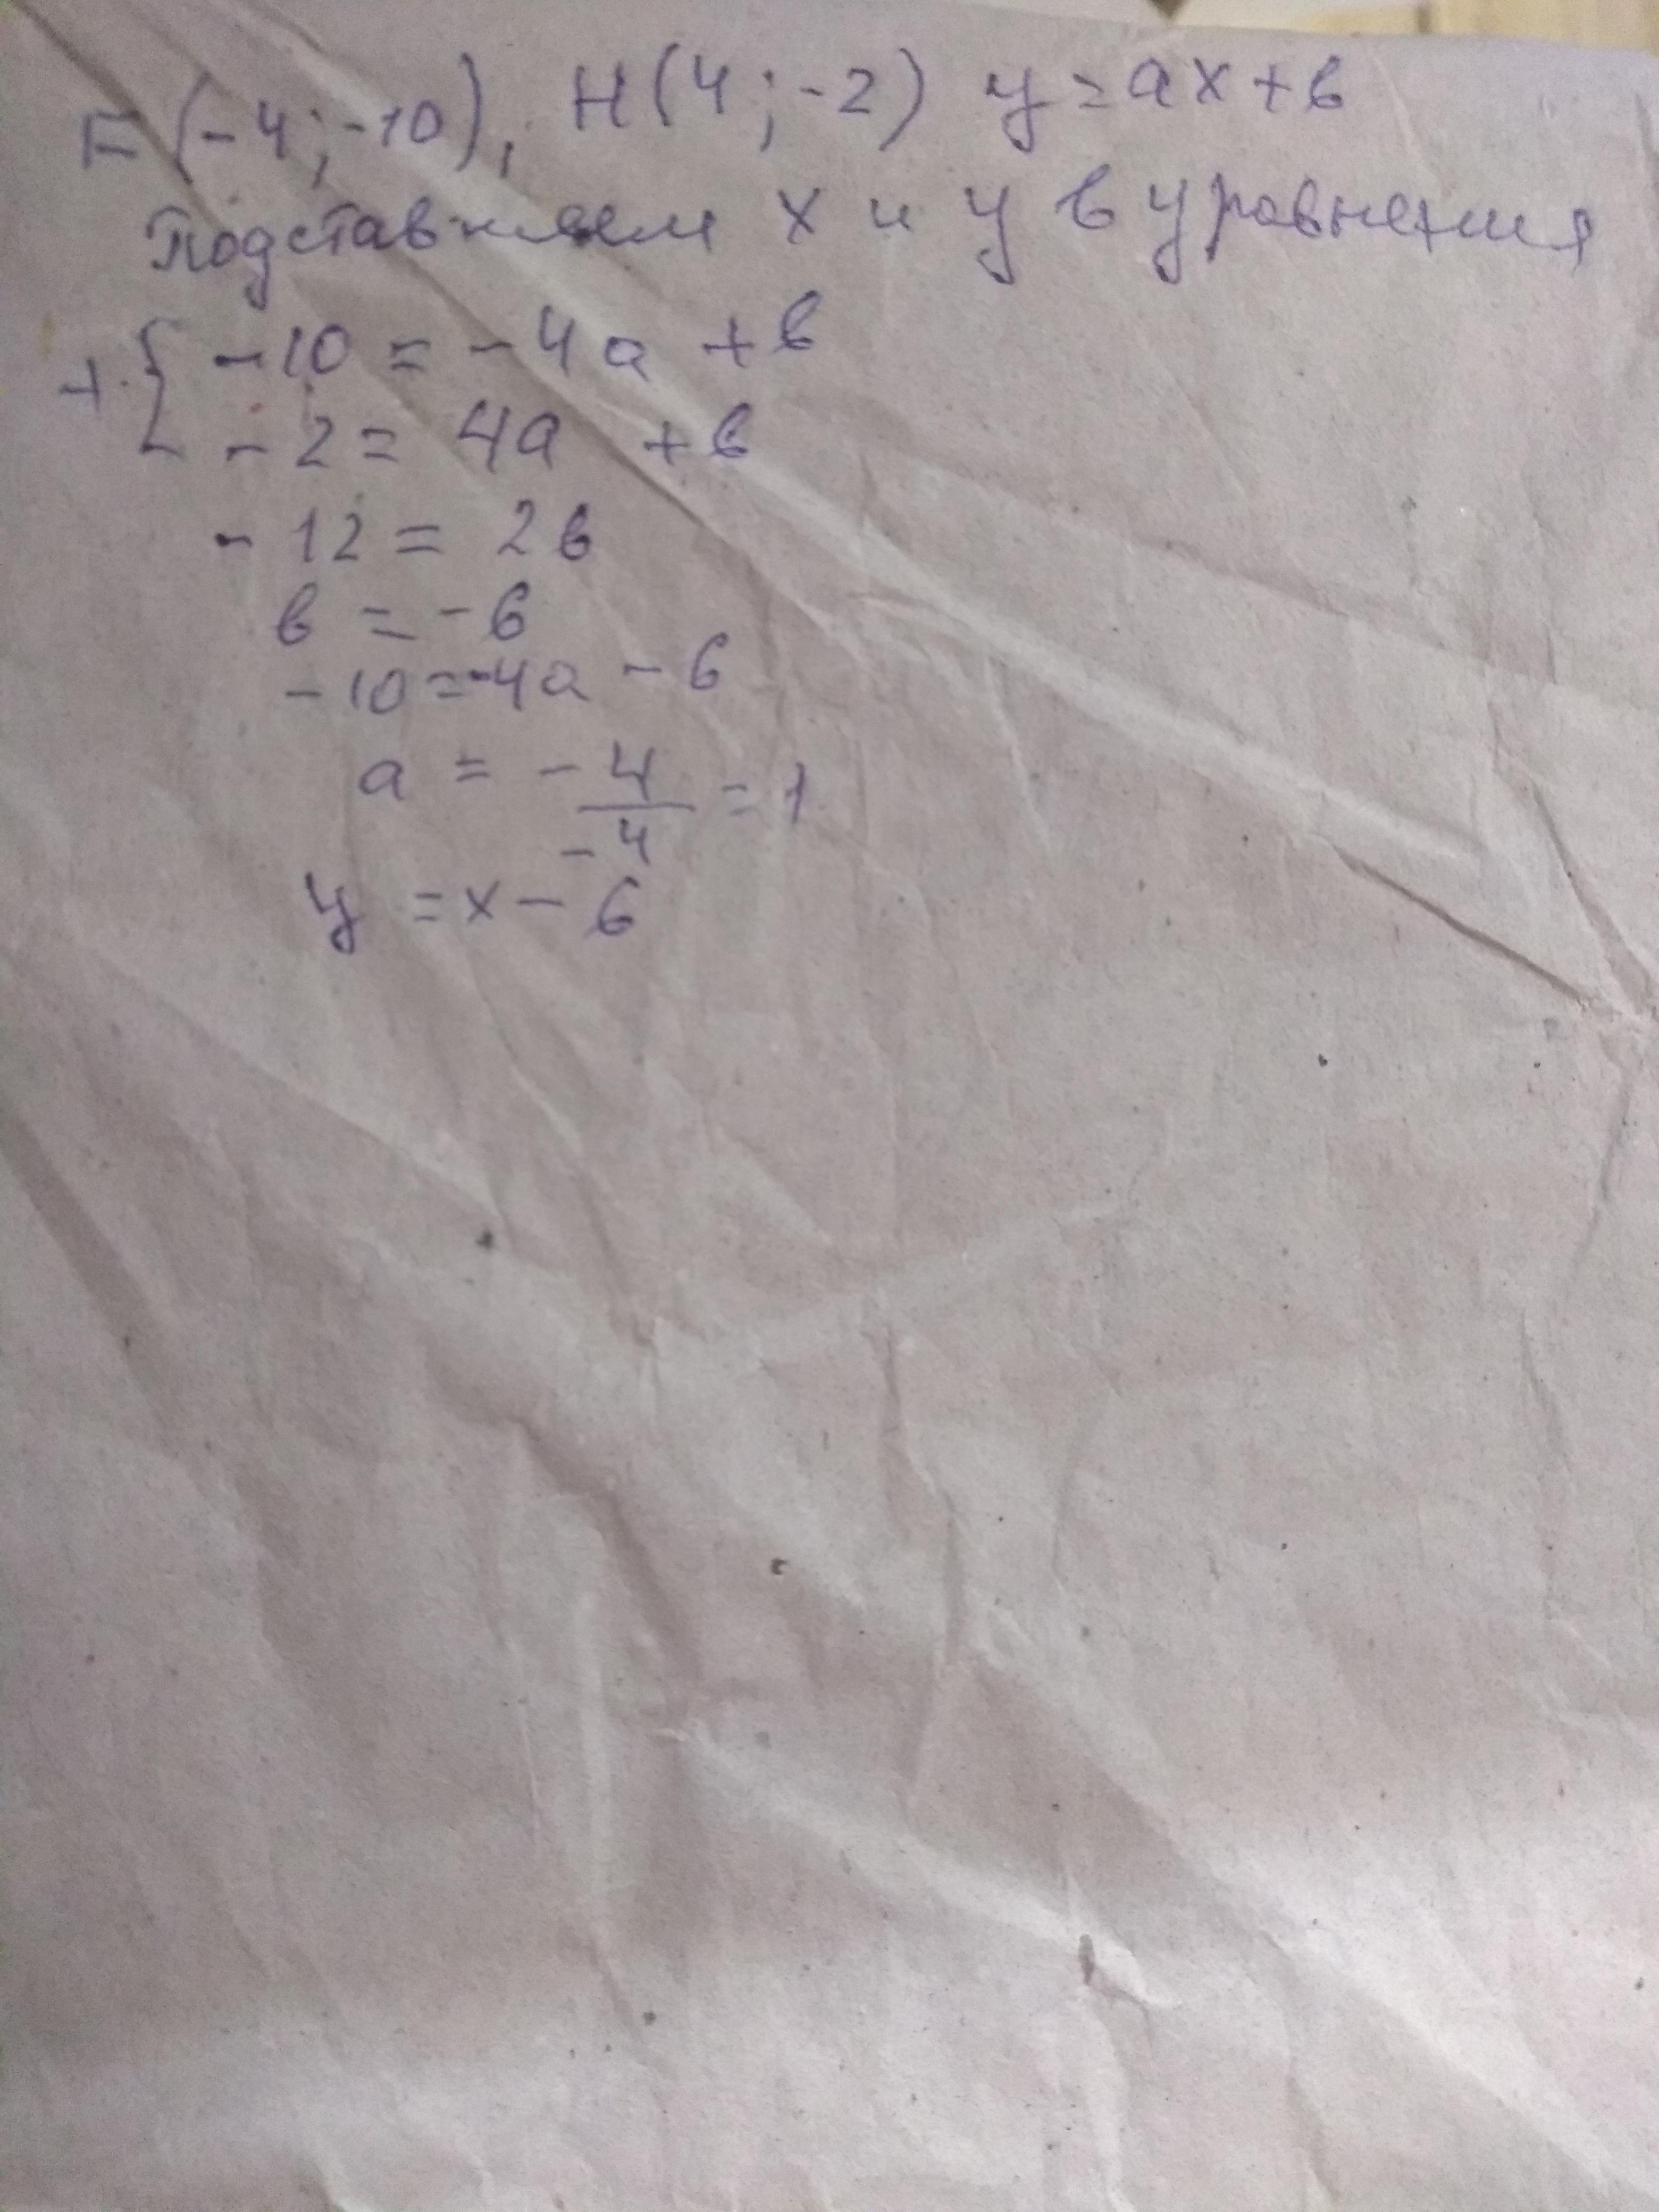 F(-4;-10), H(4;-2) y=ax+b
Подставляем x и y в уравнения
+{ -10 = -4a +b
-2 = 4a +b
-12 = 2b
b = -6
-10=-4a - 6
a = -4/-4 = 1
y = x - 6